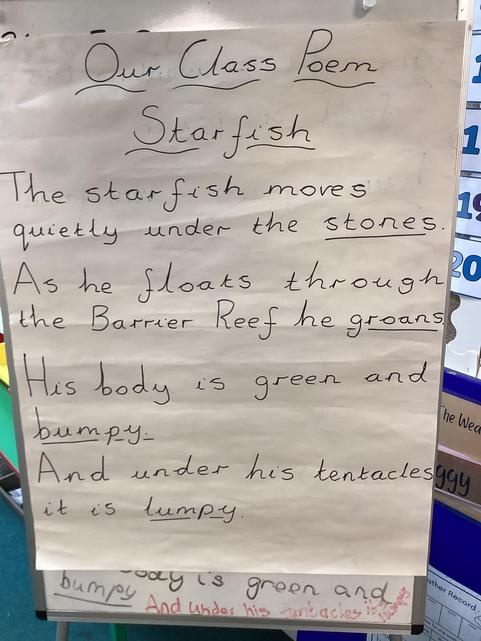 Our Class Poem
Starfish
The starfish moves
quietly under the stones.
As he floats through
the Barrier Reef he groans
His body is green and
bumpy.
And under his tentacles
it is lumpy.
body is green and
bumpy And under his tentacles it is
The Wea
ggy
ather Record
1
1
19
20